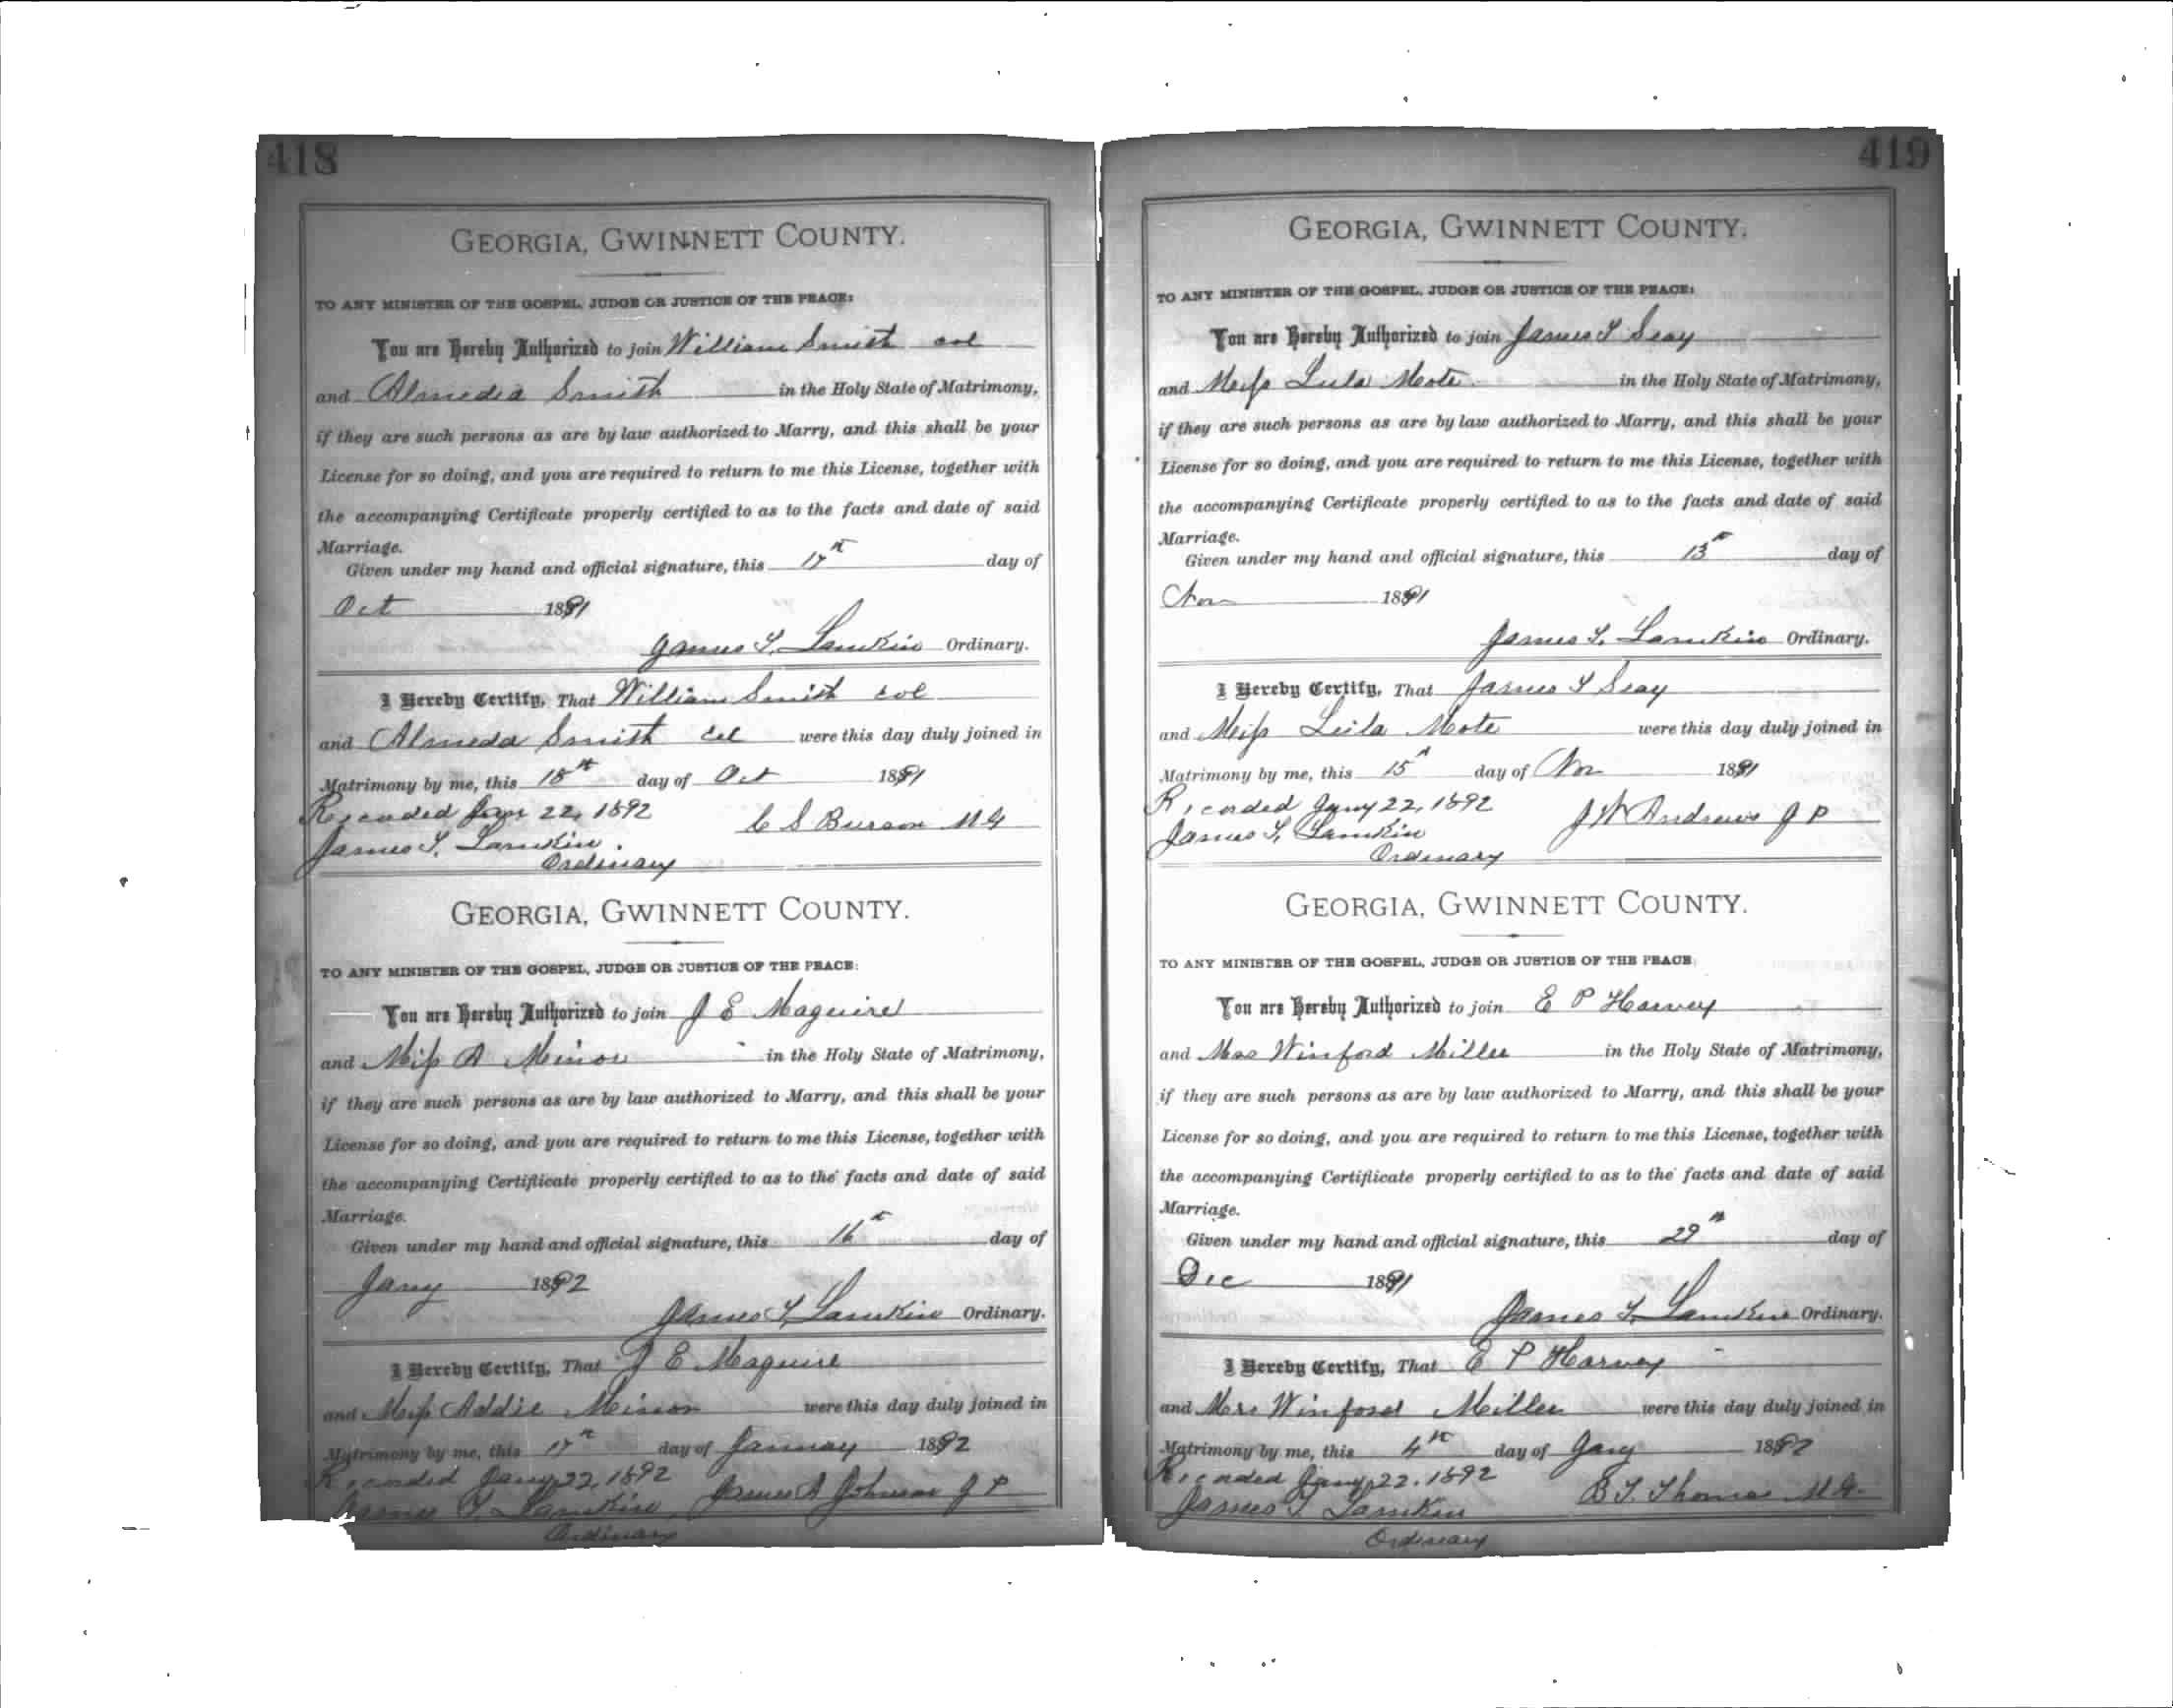 418
GEORGIA, GWINNETT COUNTY.
TO ANY MINISTER OF THE GOSPEL, JUDGE OR JUSTICE OF THE PEACE:
You are Hereby Authorized to join William Smith col
and Almedia Smith in the Holy State of Matrimony,
if they are such persons as are by law authorized to Marry, and this shall be your
License for so doing, and you are required to return to me this License, together with
the accompanying Certificate properly certified to as to the facts and date of said
Marriage.
Given under my hand and official signature, this 17th day of
Oct 1891
James T. Lamkin Ordinary.
I Hereby Certify, That William Smith col
and Almeda Smith col were this day duly joined in
Matrimony by me, this 18th day of Oct 1891
Recorded Jan 22, 1892
C S Burson M G
James T. Lamkin.
Ordinary
GEORGIA, GWINNETT COUNTY.
TO ANY MINISTER OF THE GOSPEL, JUDGE OR JUSTICE OF THE PEACE:
You are Hereby Authorized to join J E Maguire
and Miss A Minor in the Holy State of Matrimony,
if they are such persons as are by law authorized to Marry, and this shall be your
License for so doing, and you are required to return to me this License, together with
the accompanying Certificate properly certified to as to the facts and date of said
Marriage.
Given under my hand and official signature, this 16th day of
Jany 1892
James T. Lamkin Ordinary.
I Hereby Certify, That J E Maguire
and Miss Addie Minor were this day duly joined in
Matrimony by me, this 17th day of January 1892
Recorded Jany 22, 1892
James A Johnson J P
James T. Lamkin,
Ordinary
419
GEORGIA, GWINNETT COUNTY.
TO ANY MINISTER OF THE GOSPEL, JUDGE OR JUSTICE OF THE PEACE:
You are Hereby Authorized to join James T Seay
and Miss Lula Mote in the Holy State of Matrimony,
if they are such persons as are by law authorized to Marry, and this shall be your
License for so doing, and you are required to return to me this License, together with
the accompanying Certificate properly certified to as to the facts and date of said
Marriage.
Given under my hand and official signature, this 13th day of
Nov 1891
James T. Lamkin Ordinary.
I Hereby Certify, That James T Seay
and Miss Leila Mote were this day duly joined in
Matrimony by me, this 15th day of Nov 1891
Recorded Jany 22, 1892
J W Andrews J P
James T. Lamkin
Ordinary
GEORGIA, GWINNETT COUNTY.
TO ANY MINISTER OF THE GOSPEL, JUDGE OR JUSTICE OF THE PEACE:
You are Hereby Authorized to join E P Harvey
and Mrs Winford Miller in the Holy State of Matrimony,
if they are such persons as are by law authorized to Marry, and this shall be your
License for so doing, and you are required to return to me this License, together with
the accompanying Certificate properly certified to as to the facts and date of said
Marriage.
Given under my hand and official signature, this 29th day of
Dec 1891
James T. Lamkin Ordinary.
I Hereby Certify, That E P Harvey
and Mrs Winford Miller were this day duly joined in
Matrimony by me, this 4th day of Jany 1892
Recorded Jany 22. 1892
B T. Thomas M G.
James T Lamkin
Ordinary